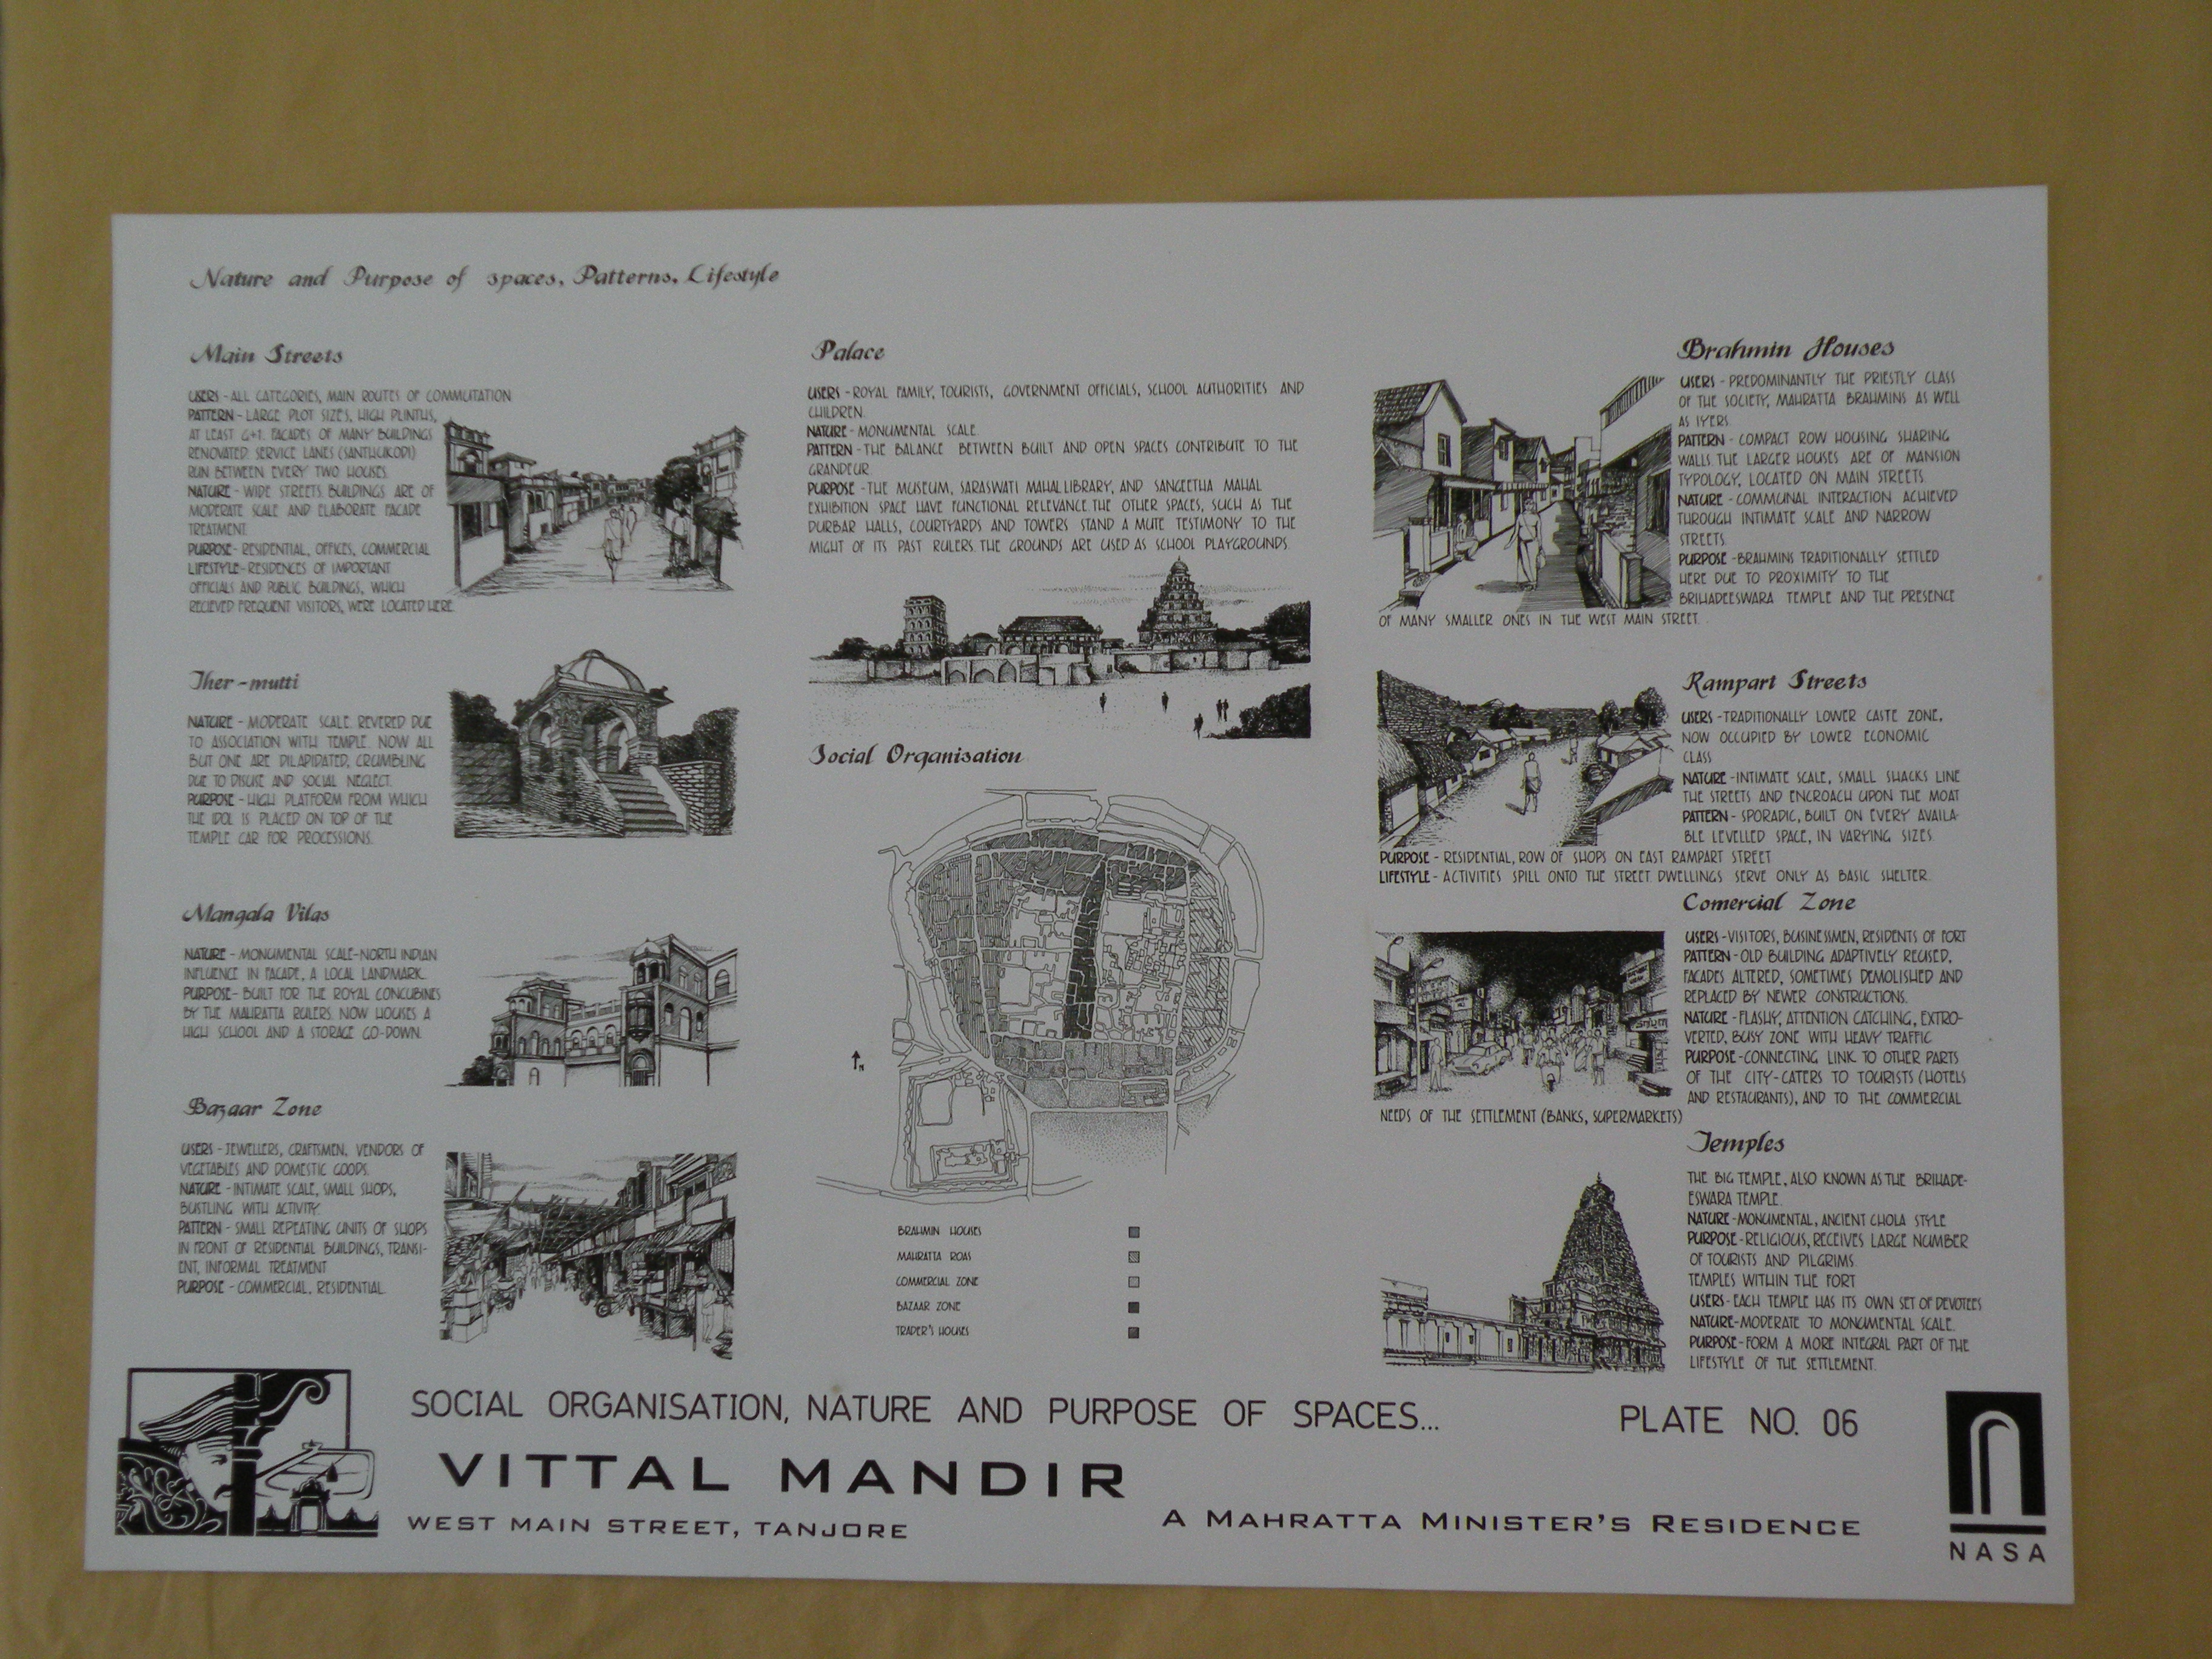 Nature and Purpose of spaces, Patterns, Lifestyle
Main Streets
USERS - ALL CATEGORIES, MAIN ROUTES OF COMMUTATION
PATTERN - LARGE PLOT SIZES, HIGH PLINTHS,
AT LEAST G+1. FACADES OF MANY BUILDINGS
RENOVATED. SERVICE LANES (SANTHUKODI)
RUN BETWEEN EVERY TWO HOUSES.
NATURE - WIDE STREETS. BUILDINGS ARE OF
MODERATE SCALE AND ELABORATE FACADE
TREATMENT.
PURPOSE - RESIDENTIAL, OFFICES, COMMERCIAL
LIFESTYLE - RESIDENCES OF IMPORTANT
OFFICIALS AND PUBLIC BUILDINGS, WHICH
RECIEVED FREQUENT VISITORS, WERE LOCATED HERE.
Ther-mutti
NATURE - MODERATE SCALE. REVERED DUE
TO ASSOCIATION WITH TEMPLE. NOW ALL
BUT ONE ARE DILAPIDATED, CRUMBLING
DUE TO DISUSE AND SOCIAL NEGLECT.
PURPOSE - HIGH PLATFORM FROM WHICH
THE IDOL IS PLACED ON TOP OF THE
TEMPLE CAR FOR PROCESSIONS.
Mangala Vilas
NATURE - MONUMENTAL SCALE-NORTH INDIAN
INFLUENCE IN FACADE, A LOCAL LANDMARK.
PURPOSE - BUILT FOR THE ROYAL CONCUBINES
BY THE MAHRATTA RULERS. NOW HOUSES A
HIGH SCHOOL AND A STORAGE GO-DOWN.
Bazaar Zone
USERS - JEWELLERS, CRAFTSMEN, VENDORS OF
VEGETABLES AND DOMESTIC GOODS.
NATURE - INTIMATE SCALE, SMALL SHOPS,
BUSTLING WITH ACTIVITY
PATTERN - SMALL REPEATING UNITS OF SHOPS
IN FRONT OF RESIDENTIAL BUILDINGS, TRANSI-
ENT, INFORMAL TREATMENT
PURPOSE - COMMERCIAL, RESIDENTIAL.
Palace
USERS - ROYAL FAMILY, TOURISTS, GOVERNMENT OFFICIALS, SCHOOL AUTHORITIES AND
CHILDREN.
NATURE - MONUMENTAL SCALE.
PATTERN - THE BALANCE BETWEEN BUILT AND OPEN SPACES CONTRIBUTE TO THE
GRANDEUR.
PURPOSE - THE MUSEUM, SARASWATI MAHAL LIBRARY, AND SANGEETHA MAHAL
EXHIBITION SPACE HAVE FUNCTIONAL RELEVANCE. THE OTHER SPACES, SUCH AS THE
DURBAR HALLS, COURTYARDS AND TOWERS STAND A MUTE TESTIMONY TO THE
MIGHT OF ITS PAST RULERS. THE GROUNDS ARE USED AS SCHOOL PLAYGROUNDS.
Social Organisation
N
BRAHMIN HOUSES
MAHRATTA ROAS
COMMERCIAL ZONE
BAZAAR ZONE
TRADER'S HOUSES
Brahmin Houses
USERS - PREDOMINANTLY THE PRIESTLY CLASS
OF THE SOCIETY, MAHRATTA BRAHMINS AS WELL
AS IYERS.
PATTERN - COMPACT ROW HOUSING SHARING
WALLS. THE LARGER HOUSES ARE OF MANSION
TYPOLOGY, LOCATED ON MAIN STREETS.
NATURE - COMMUNAL INTERACTION ACHIEVED
THROUGH INTIMATE SCALE AND NARROW
STREETS.
PURPOSE - BRAHMINS TRADITIONALLY SETTLED
HERE DUE TO PROXIMITY TO THE
BRIHADEESWARA TEMPLE AND THE PRESENCE
OF MANY SMALLER ONES IN THE WEST MAIN STREET.
Rampart Streets
USERS - TRADITIONALLY LOWER CASTE ZONE,
NOW OCCUPIED BY LOWER ECONOMIC
CLASS
NATURE - INTIMATE SCALE, SMALL SHACKS LINE
THE STREETS AND ENCROACH UPON THE MOAT
PATTERN - SPORADIC, BUILT ON EVERY AVAILA-
BLE LEVELLED SPACE, IN VARYING SIZES.
PURPOSE - RESIDENTIAL, ROW OF SHOPS ON EAST RAMPART STREET
LIFESTYLE - ACTIVITIES SPILL ONTO THE STREET. DWELLINGS SERVE ONLY AS BASIC SHELTER.
Comercial Zone
USERS - VISITORS, BUSINESSMEN, RESIDENTS OF FORT
PATTERN - OLD BUILDING ADAPTIVELY REUSED,
FACADES ALTERED, SOMETIMES DEMOLISHED AND
REPLACED BY NEWER CONSTRUCTIONS.
NATURE - FLASHY, ATTENTION CATCHING, EXTRO-
VERTED, BUSY ZONE WITH HEAVY TRAFFIC
PURPOSE - CONNECTING LINK TO OTHER PARTS
OF THE CITY-CATERS TO TOURISTS (HOTELS
AND RESTAURANTS), AND TO THE COMMERCIAL
NEEDS OF THE SETTLEMENT (BANKS, SUPERMARKETS)
Temples
THE BIG TEMPLE, ALSO KNOWN AS THE BRIHADE-
ESWARA TEMPLE.
NATURE - MONUMENTAL, ANCIENT CHOLA STYLE
PURPOSE - RELIGIOUS, RECEIVES LARGE NUMBER
OF TOURISTS AND PILGRIMS.
TEMPLES WITHIN THE FORT
USERS - EACH TEMPLE HAS ITS OWN SET OF DEVOTEES
NATURE - MODERATE TO MONUMENTAL SCALE.
PURPOSE - FORM A MORE INTEGRAL PART OF THE
LIFESTYLE OF THE SETTLEMENT.
SOCIAL ORGANISATION, NATURE AND PURPOSE OF SPACES...
PLATE NO. 06
VITTAL MANDIR
WEST MAIN STREET, TANJORE
A MAHRATTA MINISTER'S RESIDENCE
NASA